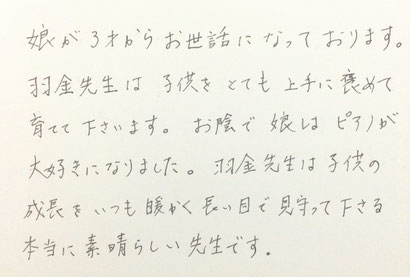 娘が3才からお世話になっております。
羽金先生は子供をとても上手に褒めて
育てて下さいます。お陰で娘はピアノが
大好きになりました。羽金先生は子供の
成長をいつも暖かく長い目で見守って下さる
本当に素晴らしい先生です。